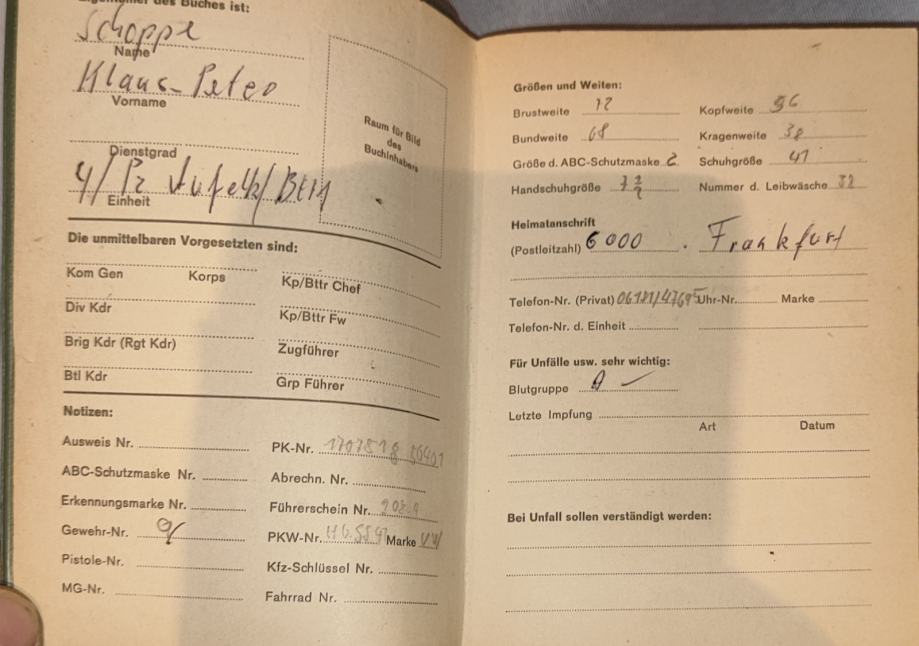 des Buches ist:
Schoppe
Name
Klaus-Peter
Vorname
Dienstgrad
4/Pz
Einheit
Raum für Bild
des
Buchinhabers
Die unmittelbaren Vorgesetzten sind:
Kom Gen Korps Kp/Bttr Chef
Div Kdr Kp/Bttr Fw
Brig Kdr (Rgt Kdr) Zugführer
Btl Kdr Grp Führer
Notizen:
Ausweis Nr. PK-Nr.
ABC-Schutzmaske Nr. Abrechn. Nr.
Erkennungsmarke Nr. Führerschein Nr.
Gewehr-Nr. PKW-Nr. Marke VW
Pistole-Nr. Kfz-Schlüssel Nr.
MG-Nr. Fahrrad Nr.
Größen und Weiten:
Brustweite Kopfweite 56
Bundweite 68 Kragenweite 38
Größe d. ABC-Schutzmaske 2 Schuhgröße 41
Handschuhgröße 7 1/2 Nummer d. Leibwäsche 32
Heimatanschrift
(Postleitzahl) 6000 . Frankfurt
Telefon-Nr. (Privat) Uhr-Nr. Marke
Telefon-Nr. d. Einheit
Für Unfälle usw. sehr wichtig:
Blutgruppe
Letzte Impfung
Art Datum
Bei Unfall sollen verständigt werden: